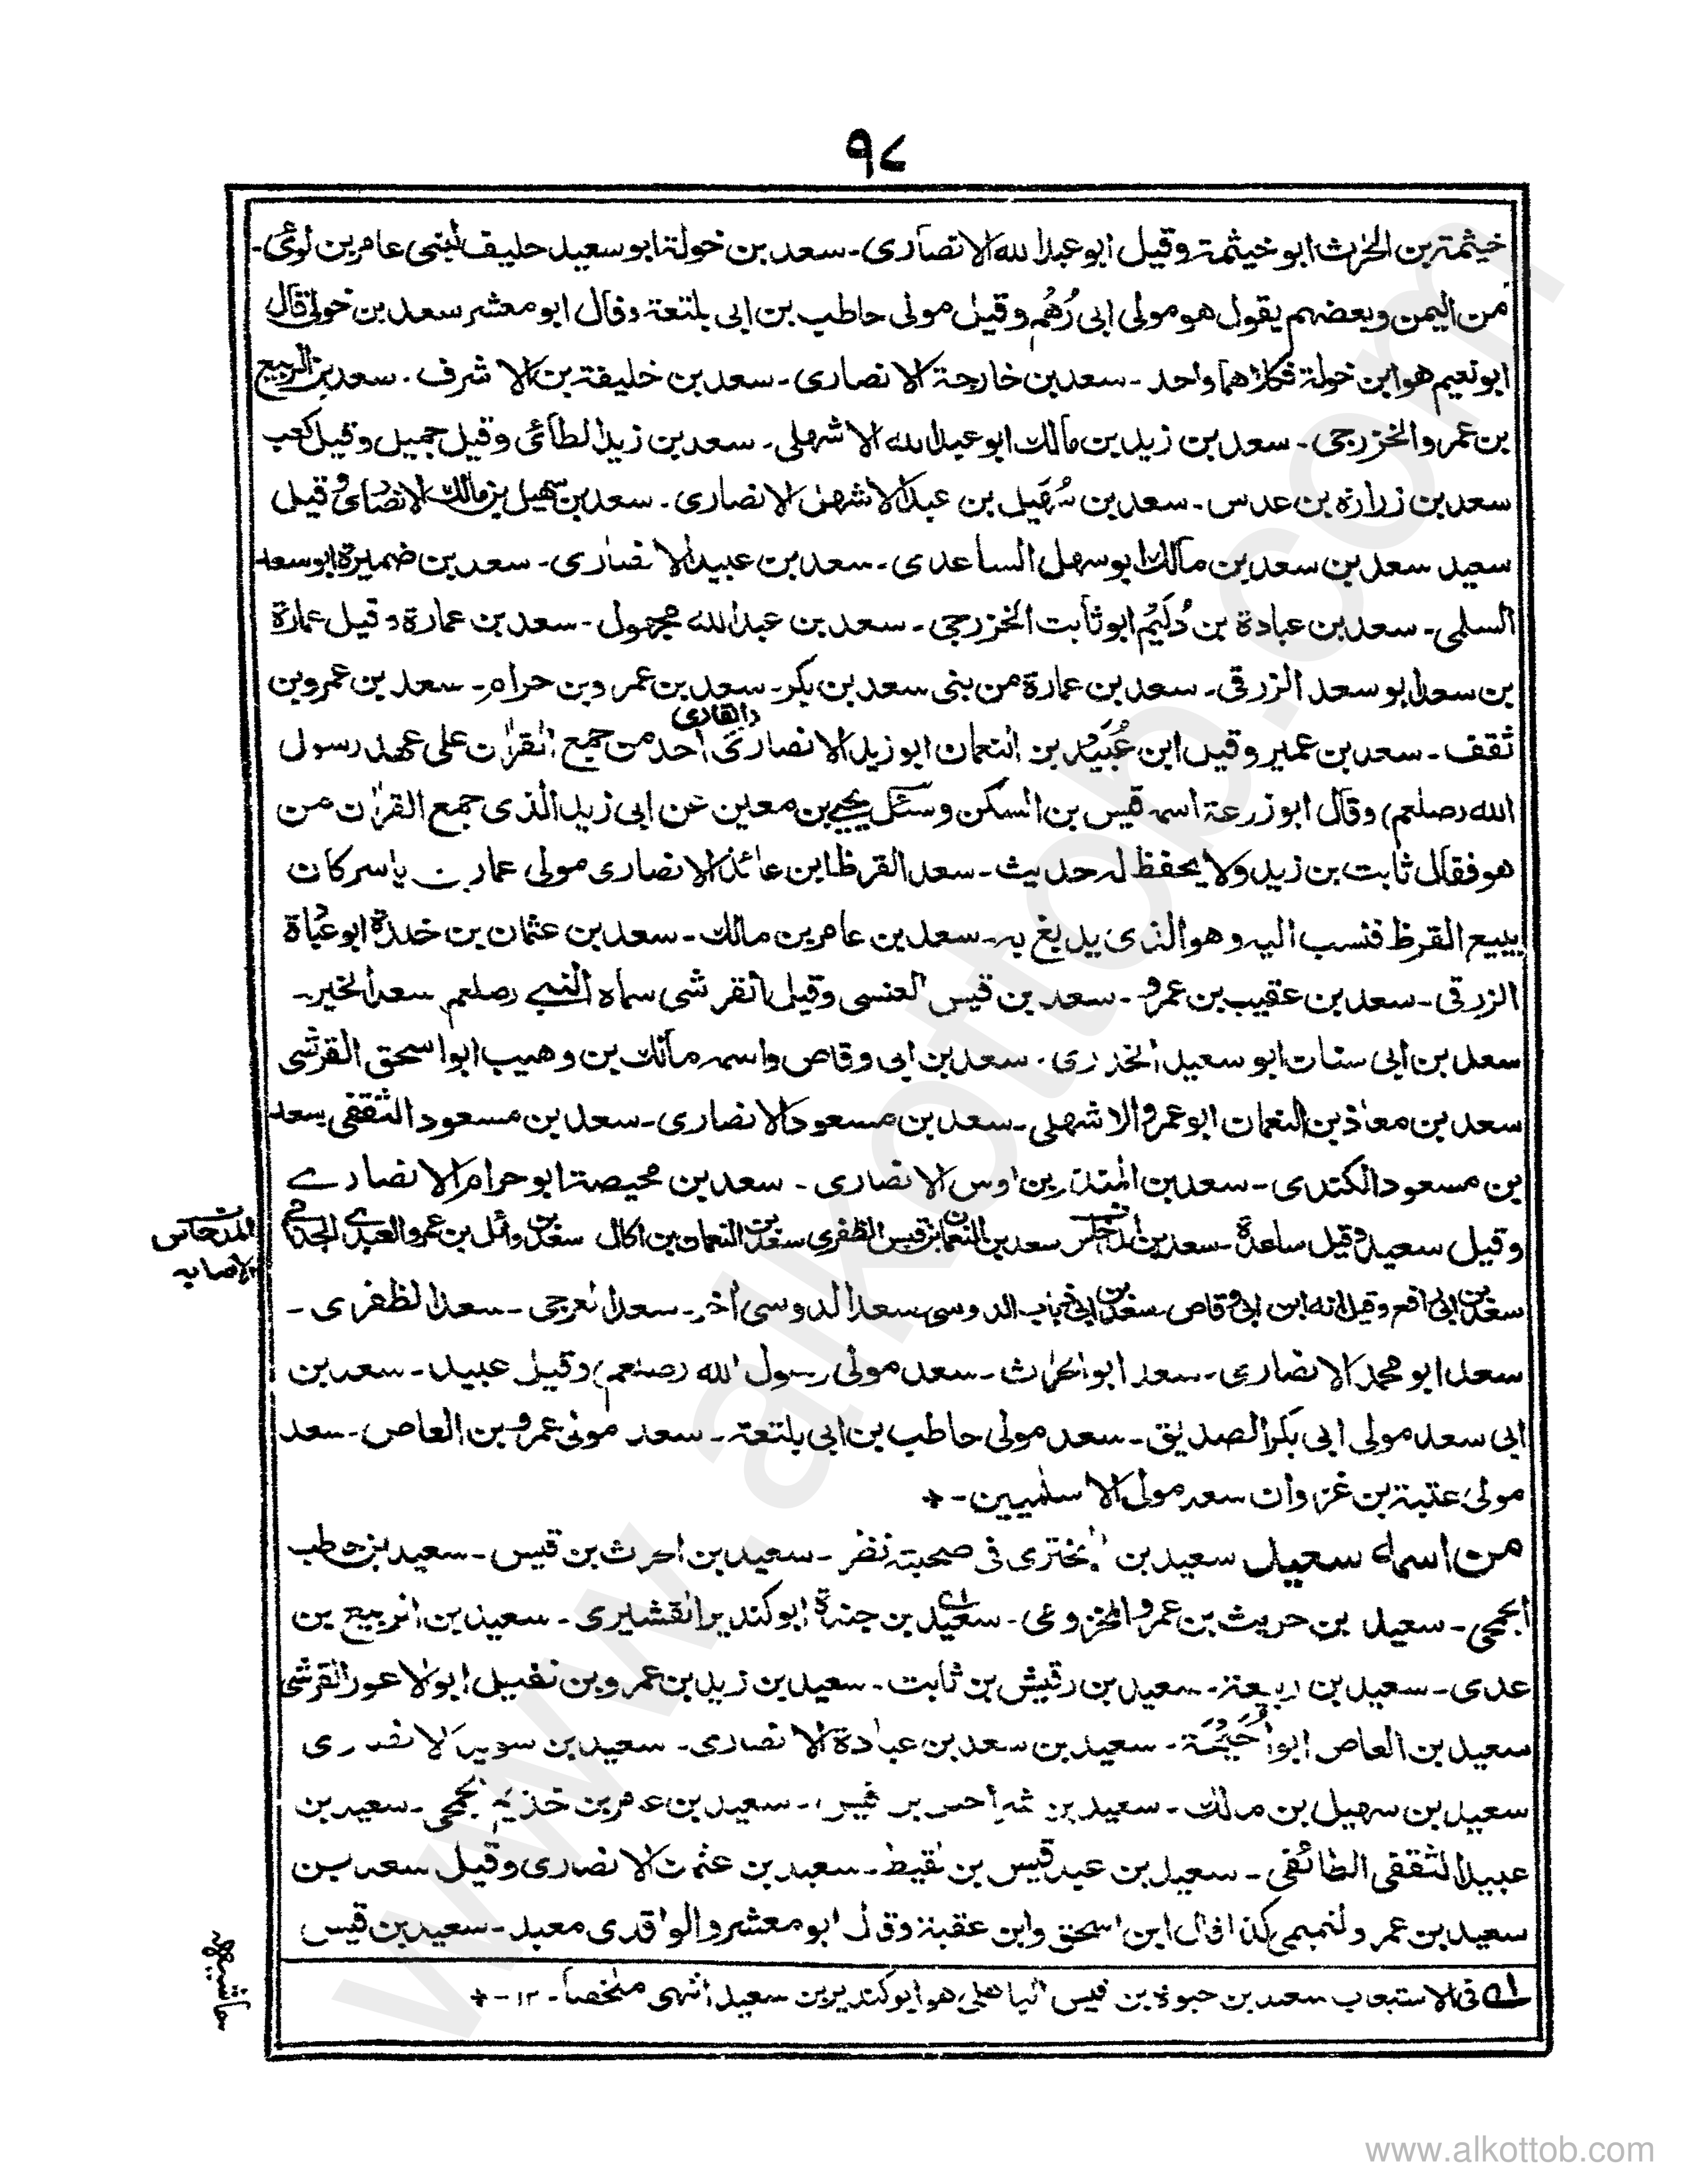 ٩٨
خيثمة بن الحرث ابو خيثمة وقيل ابو عبد الله الانصاری۔ سعد بن خولة ابو سعيد حليف لبنی عامر بن لوئی۔
من اليمن وبعضهم يقول هو مولی ابی رُهْم وقيل مولی حاطب بن ابی بلتعة وقال ابو معشر سعد بن خولی قال
ابو نعيم هو ابن خولة فكلاهما واحد ۔ سعد بن خارجة الانصاری ۔ سعد بن خليفة بن الاشرف ۔ سعد بن الربيع
بن عمرو الخزرجی ۔ سعد بن زيد بن مالك ابو عبد الله الاشهلی ۔ سعد بن زيد الطائی وقيل جميل وقيل كعب
سعد بن زرارة بن عدس ۔ سعد بن سُهَيل بن عبد الاشهل الانصاری ۔ سعد بن سهيل بن مالك الانصاری وقيل
سعيد سعد بن سعد بن مالك ابو سهل الساعدی ۔ سعد بن عبيد الانصاری ۔ سعد بن ضميرة ابو سعد
السلمی ۔ سعد بن عبادة بن دُلَيْم ابو ثابت الخزرجی ۔ سعد بن عبد الله مجهول ۔ سعد بن عمارة وقيل عمارة
بن سعد ابو سعد الزرقی ۔ سعد بن عمارة من بنی سعد بن بكر ۔ سعد بن عمرو بن حرام ۔ سعد بن عمرو بن
ثقف ۔ سعد بن عمير وقيل ابن عُبَيْد بن النعمان ابو زيد الانصاری (القاری) احد من جمع القرآن علی عهد رسول
الله (صلعم) وقال ابو زرعة اسمه قيس بن السكن وسئل يحيی بن معين عن ابی زيد الذی جمع القرآن من
هو فقال ثابت بن زيد ولا يحفظ له حديث ۔ سعد القرظ ابن عائذ الانصاری مولی عمار بن ياسر كان
يبيع القرظ فنسب اليه وهو الذی يدبغ به ۔ سعد بن عامر بن مالك ۔ سعد بن عثمان بن خلدة ابو عُباة
الزرقی ۔ سعد بن عقيب بن عمرو ۔ سعد بن قيس العنسی وقيل القرشی سماه النبی (صلعم) سعد الخير ۔
سعد بن ابی سنان ابو سعيد الخدری ۔ سعد بن ابی وقاص واسمه مالك بن وهيب ابو اسحق القرشی
سعد بن معاذ بن النعمان ابو عمرو الاشهلی ۔ سعد بن مسعود الانصاری ۔ سعد بن مسعود الثقفی سعد
بن مسعود الكندی ۔ سعد بن المنذر بن اوس الانصاری ۔ سعد بن محيصة ابو حرام الانصاری
وقيل سعيد وقيل ساعدة ۔ سعد بن سعد بن النعمان بن قيس الظفری سعد بن النعمان بن اكال سعد بن وائل بن عمرو العبدی الجذامی
المدحاس
الاصابه
سعد بن ابی رافع وقيل انه ابن ابی وقاص ۔ سعد بن ابی ذباب الدوسی سعد الدوسی اخر ۔ سعد العرجی ۔ سعد الظفری ۔
سعد ابو محمد الانصاری ۔ سعد ابو الحراث ۔ سعد مولی رسول الله (صلعم) وقيل عبيد ۔ سعد بن
ابی سعد مولی ابی بكر الصديق ۔ سعد مولی حاطب بن ابی بلتعة ۔ سعد مولی عمرو بن العاص ۔ سعد
مولی عتبة بن غزوان سعد مولی الاسلميين ۔ +
من اسمه سعيد سعيد بن البختری فی صحبته نظر ۔ سعيد بن الحرث بن قيس ۔ سعيد بن حاطب
الجمحی ۔ سعيد بن حريث بن عمرو المخزومی ۔ سعيد بن جندة ابو كندير القشيری ۔ سعيد بن الربيع بن
عدی ۔ سعيد بن ربيعة ۔ سعيد بن رقيش بن ثابت ۔ سعيد بن زيد بن عمرو بن نفيل ابو الاعور القرشی
سعيد بن العاص ابو اُحَيْحَة ۔ سعيد بن سعد بن عبادة الانصاری ۔ سعيد بن سويد الانصاری
سعيد بن سهيل بن مالك ۔ سعيد بن شراحيل بن قيس ۔ سعيد بن عامر بن حذيم الجمحی ۔ سعيد بن
عبيد الثقفی الطائفی ۔ سعيد بن عبد قيس بن لقيط ۔ سعيد بن عثمان الانصاری وقيل سعد بن
سعيد بن عمرو التميمی كذا قال ابن اسحق وابن عقبة وقال ابو معشر والواقدی معبد ۔ سعيد بن قيس
حاشيه
ا فی الاستيعاب سعيد بن حيوة بن قيس الباهلی هو ابو كندير بن سعيد انتهی ملخصاً ۔ ١٢ ۔ +
www.alkottob.com
www.alkottob.com